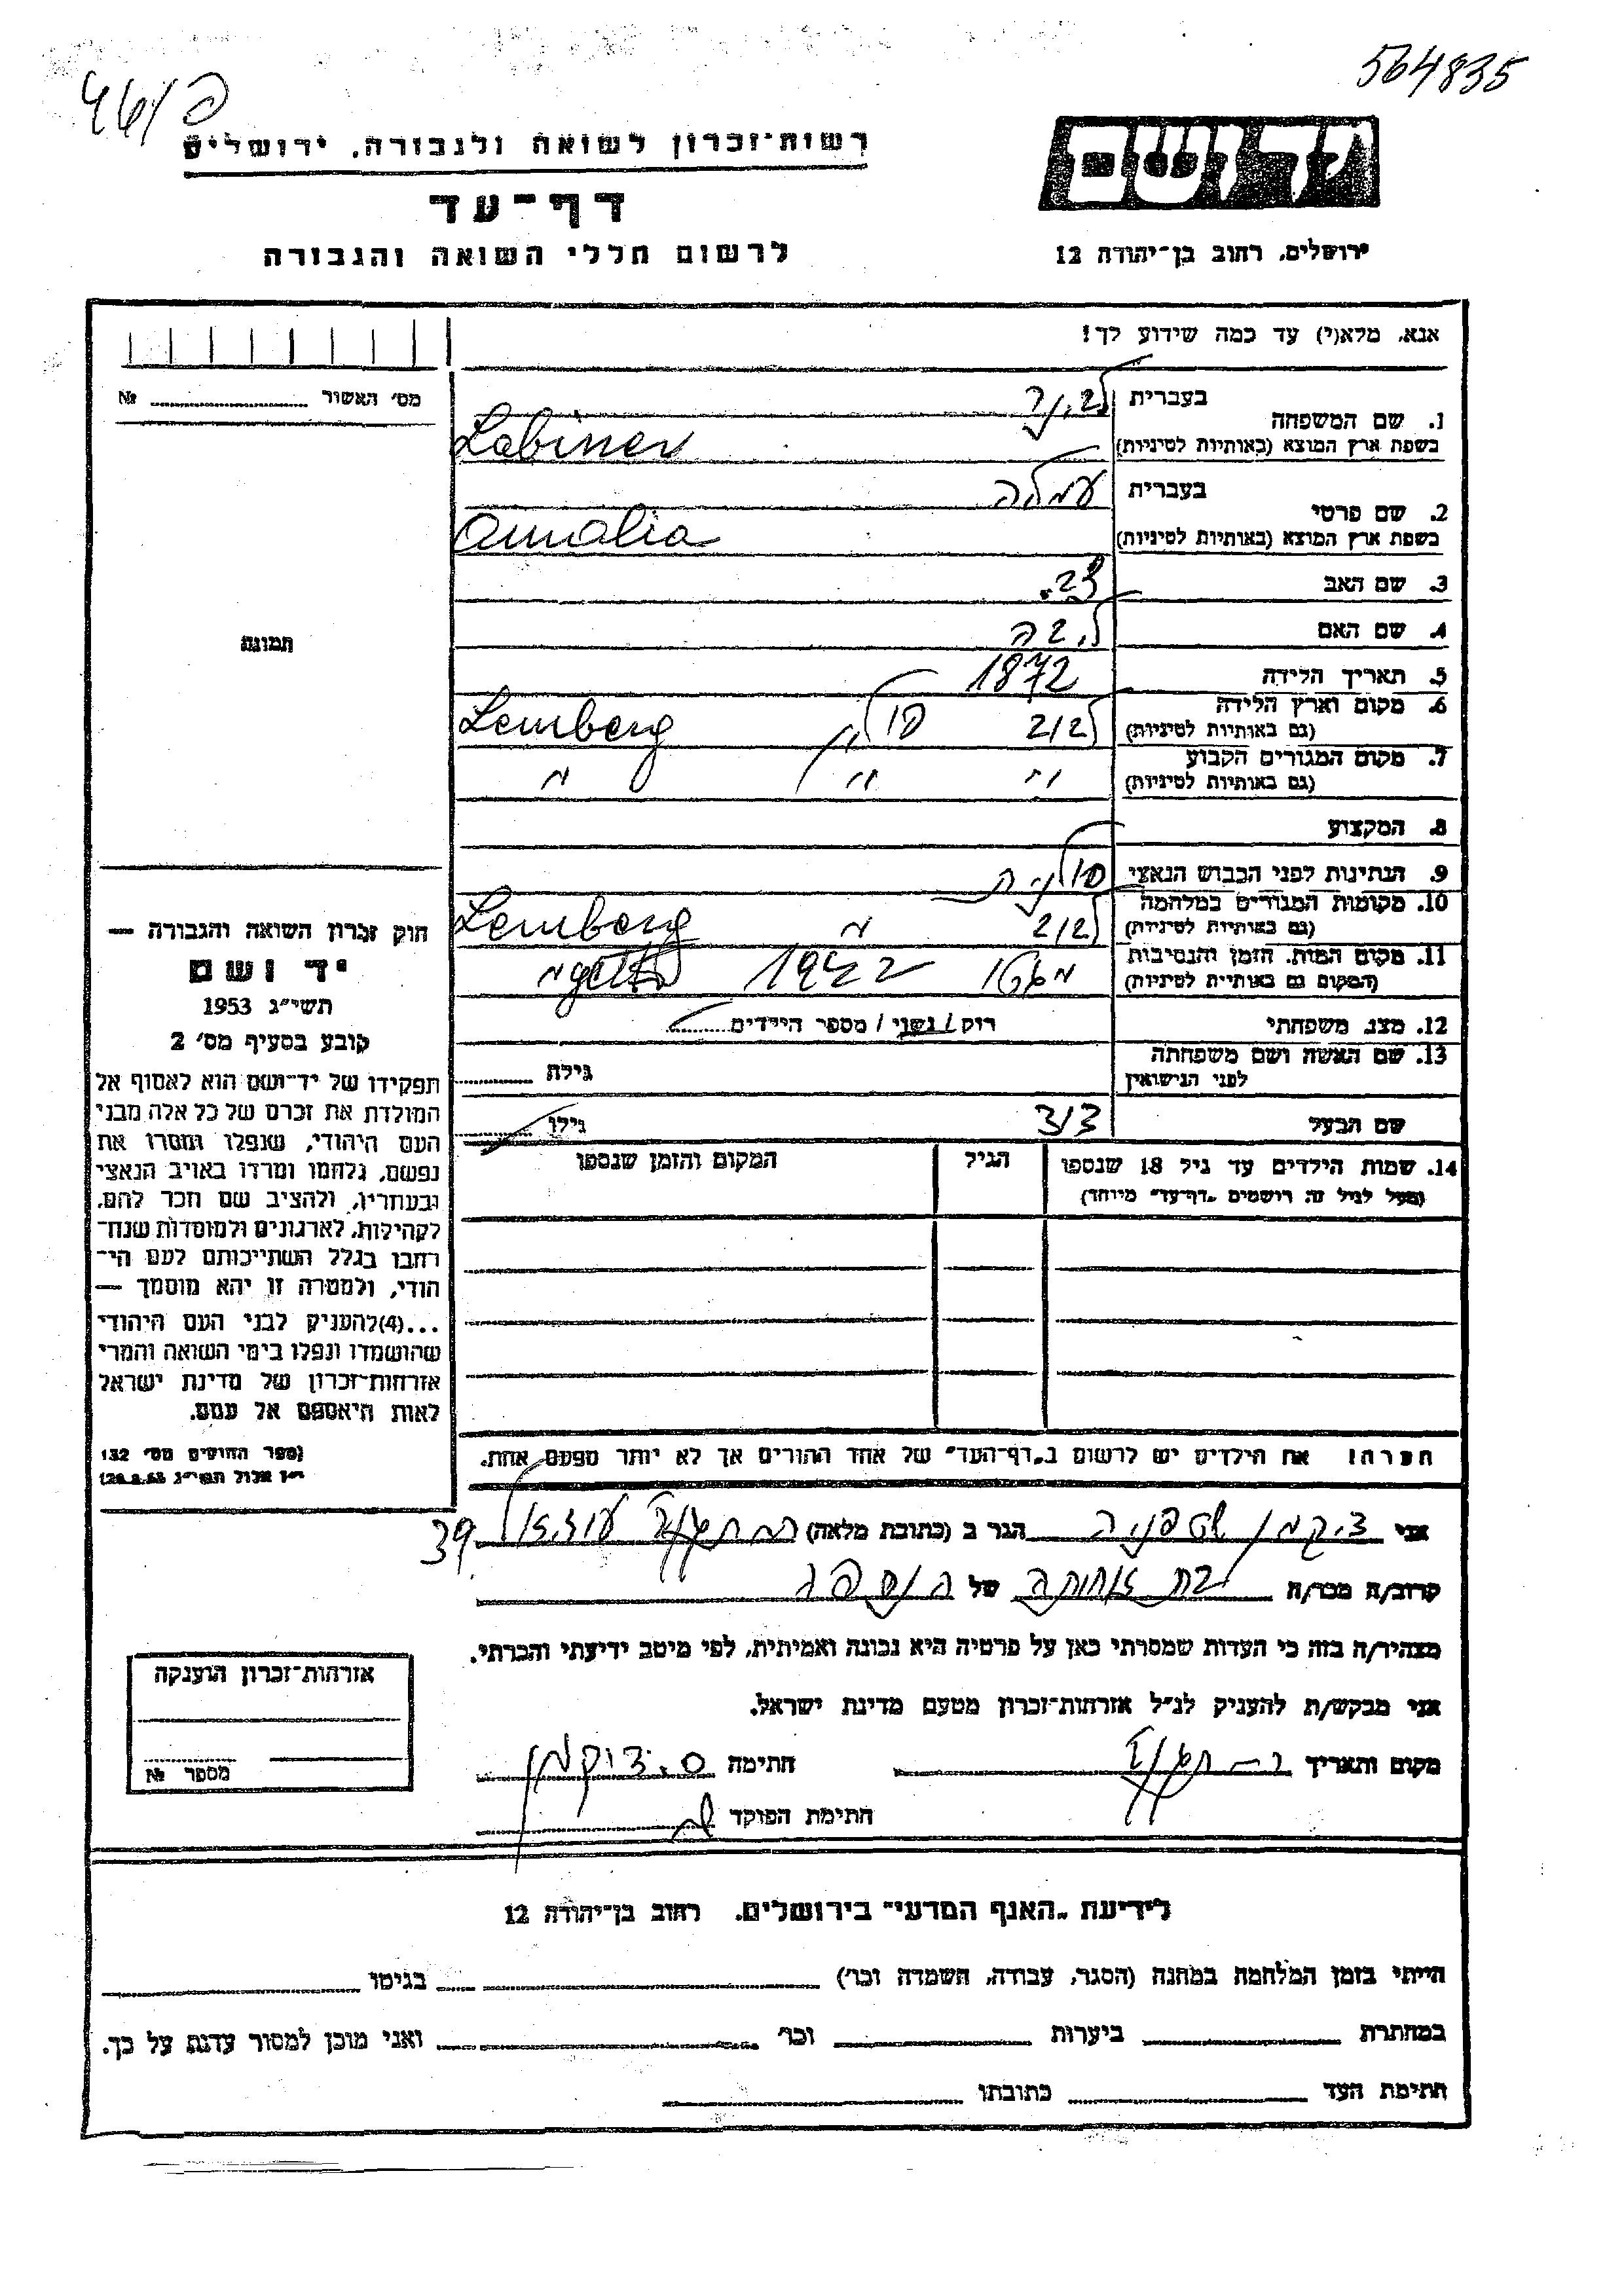 564835
רשות־זכרון לשואה ולגבורה, ירושלים
דף־עד
לרשום חללי השואה והגבורה
יד ושם
ירושלים, רחוב בן־יהודה 12
אנא, מלא(י) עד כמה שידוע לך!
מס׳ האשור № 
1. שם המשפחה
בעברית לבינר
בשפת ארץ המוצא (באותיות לטיניות) Labiner
2. שם פרטי
בעברית עמליה
בשפת ארץ המוצא (באותיות לטיניות) Amalia
3. שם האב
4. שם האם ליבה
תמונה
5. תאריך הלידה 1872
6. מקום וארץ הלידה לבוב פולין Lemberg
(גם באותיות לטיניות)
7. מקום המגורים הקבוע " " "
(גם באותיות לטיניות)
8. המקצוע
9. הנתינות לפני הכבוש הנאצי פולנית
10. מקומות המגורים במלחמה לבוב " Lemberg
(גם באותיות לטיניות)
11. מקום המות, הזמן והנסיבות 1942 " getto
(המקום גם באותיות לטיניות)
12. מצב משפחתי רוק / נשוי / מספר הילדים
13. שם האשה ושם משפחתה
לפני הנישואין גילה
שם הבעל גילו
14. שמות הילדים עד גיל 18 שנספו הגיל המקום והזמן שנספו
(מעל לגיל זה רושמים „דף־עד״ מיוחד)
חוק זכרון השואה והגבורה —
יד ושם
תשי״ג 1953
קובע בסעיף מס׳ 2
תפקידו של יד־ושם הוא לאסוף אל
המולדת את זכרם של כל אלה מבני
העם היהודי, שנפלו ומסרו את
נפשם, נלחמו ומרדו באויב הנאצי
ובעוזריו, ולהציב שם וזכר להם,
לקהילות, לארגונים ולמוסדות שנח־
רבו בגלל השתייכותם לעם הי־
הודי, ולמטרה זו יהא מוסמך —
...(4) להעניק לבני העם היהודי
שהושמדו ונפלו בימי השואה והמרי
אזרחות־זכרון של מדינת ישראל
לאות היאספם אל עמם.
(ספר החוקים מס׳ 132
י״ז אלול תשי״ג 28.8.53)
הערה: את הילדים יש לרשום ב„דף־העד״ של אחד ההורים אך לא יותר מפעם אחת.
אני צוקמן סטפניה הגר ב (כתובת מלאה) רמת גן עוזיאל 39
קרוב/ה מכר/ה בת אחותה של הנספה
מצהיר/ה בזה כי העדות שמסרתי כאן על פרטיה היא נכונה ואמיתית, לפי מיטב ידיעתי והכרתי.
אני מבקש/ת להעניק לנ״ל אזרחות־זכרון מטעם מדינת ישראל.
מקום ותאריך חתימה ס. צוקמן
חתימת הפוקד
אזרחות־זכרון הוענקה
מספר №
לידיעת „האגף המדעי״ בירושלים, רחוב בן־יהודה 12
הייתי בזמן המלחמה במחנה (הסגר, עבודה, השמדה וכו׳) בגיטו
במחתרת ביערות וכו׳ ואני מוכן למסור עדות על כך.
חתימת העד כתובתו